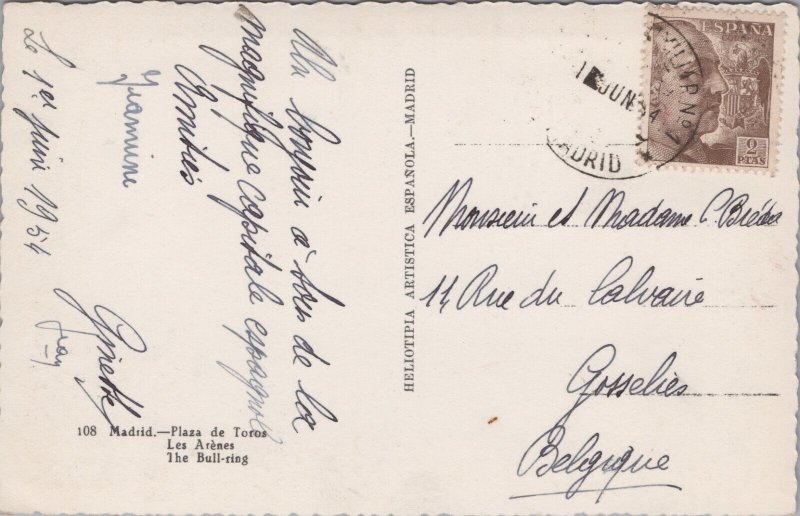 Le 1er Juin 1954
Un bonjour à tous de la
magnifique capitale espagnole
Amitiés
Jeannine
Ginette
108 Madrid.—Plaza de Toros
Les Arènes
The Bull-ring
HELIOTIPIA ARTISTICA ESPAÑOLA.—MADRID
ESPAÑA
2
PTAS
JUN 54
MADRID
Monsieur et Madame C.
14 Rue du Calvaire
Gosselies
Belgique